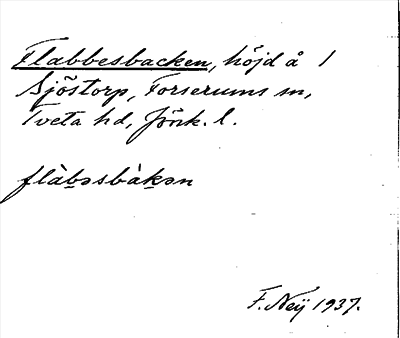 Flabbesbacken, höjd å 1
Sjöstorp, Forserums sn,
Tveta hd, Jönk. l.
flàb̲əsbàk̲ən
F. Neÿ 1937.